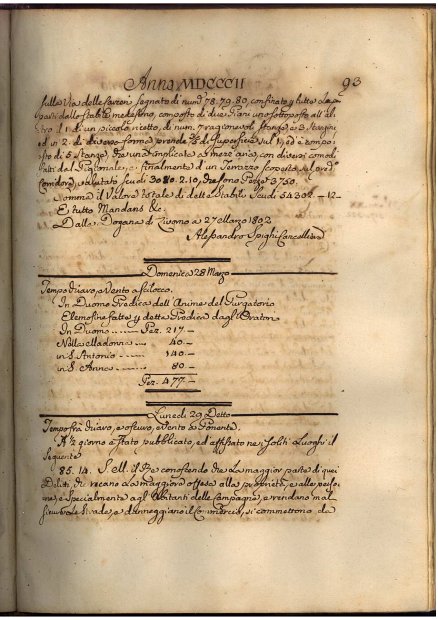 Anno MDCCCII 93
sulla Via delle Carceri segnato di num.° 78. 79. 80. confinato
parti dallo stabile medesimo, composto di due Piani uno sottoposto all'al
tro il 1. di un piccolo ricetto, di num. 7 ragionevoli stanze, e 3 stanzini
ed in 2. di diverse forme prende di superficie sul
sto di 5 stanze, che una implicata a mezz'aria, con diversi comodi
finalmente d'un Terrazzo scoperto
valutati scudi 3080. 2. 10, che sono Pezze 3750.
Somma il Valore totale di detti Stabili Scudi 54302. - 12 -
E tutto Mandans &c.
Dalla Dogana di Livorno a 27 Marzo 1802
Alessandro Spighi Cancelliere
Domenica 28 Marzo
Tempo chiaro, e Vento a scilocco.
In Duomo Predica dell'Anime del Purgatorio
Elemosine fatte p detta Predica dagl'Orator
In Duomo ...... Pez. 217 -
Nella Madonna ... 40 -
in S. Antonio ...... 140 -
in S. Anna ...... 80 -
Pez. 477 -
Lunedi 29 Detto
Tempo frà chiaro, e oscuro, e Vento a Ponente.
A ½ giorno è stato pubblicato, ed affissato ne soliti Luoghi il
Seguente
85. 14. S. ell. il Re conoscendo che la maggior parte di quei
Delitti, che recano la maggiore offesa alla proprietà, e alle perso
ne, e specialmente agl'Abitanti delle Campagne, e rendano mal
sicure le Strade, e danneggiano il Commercio, si commettono da